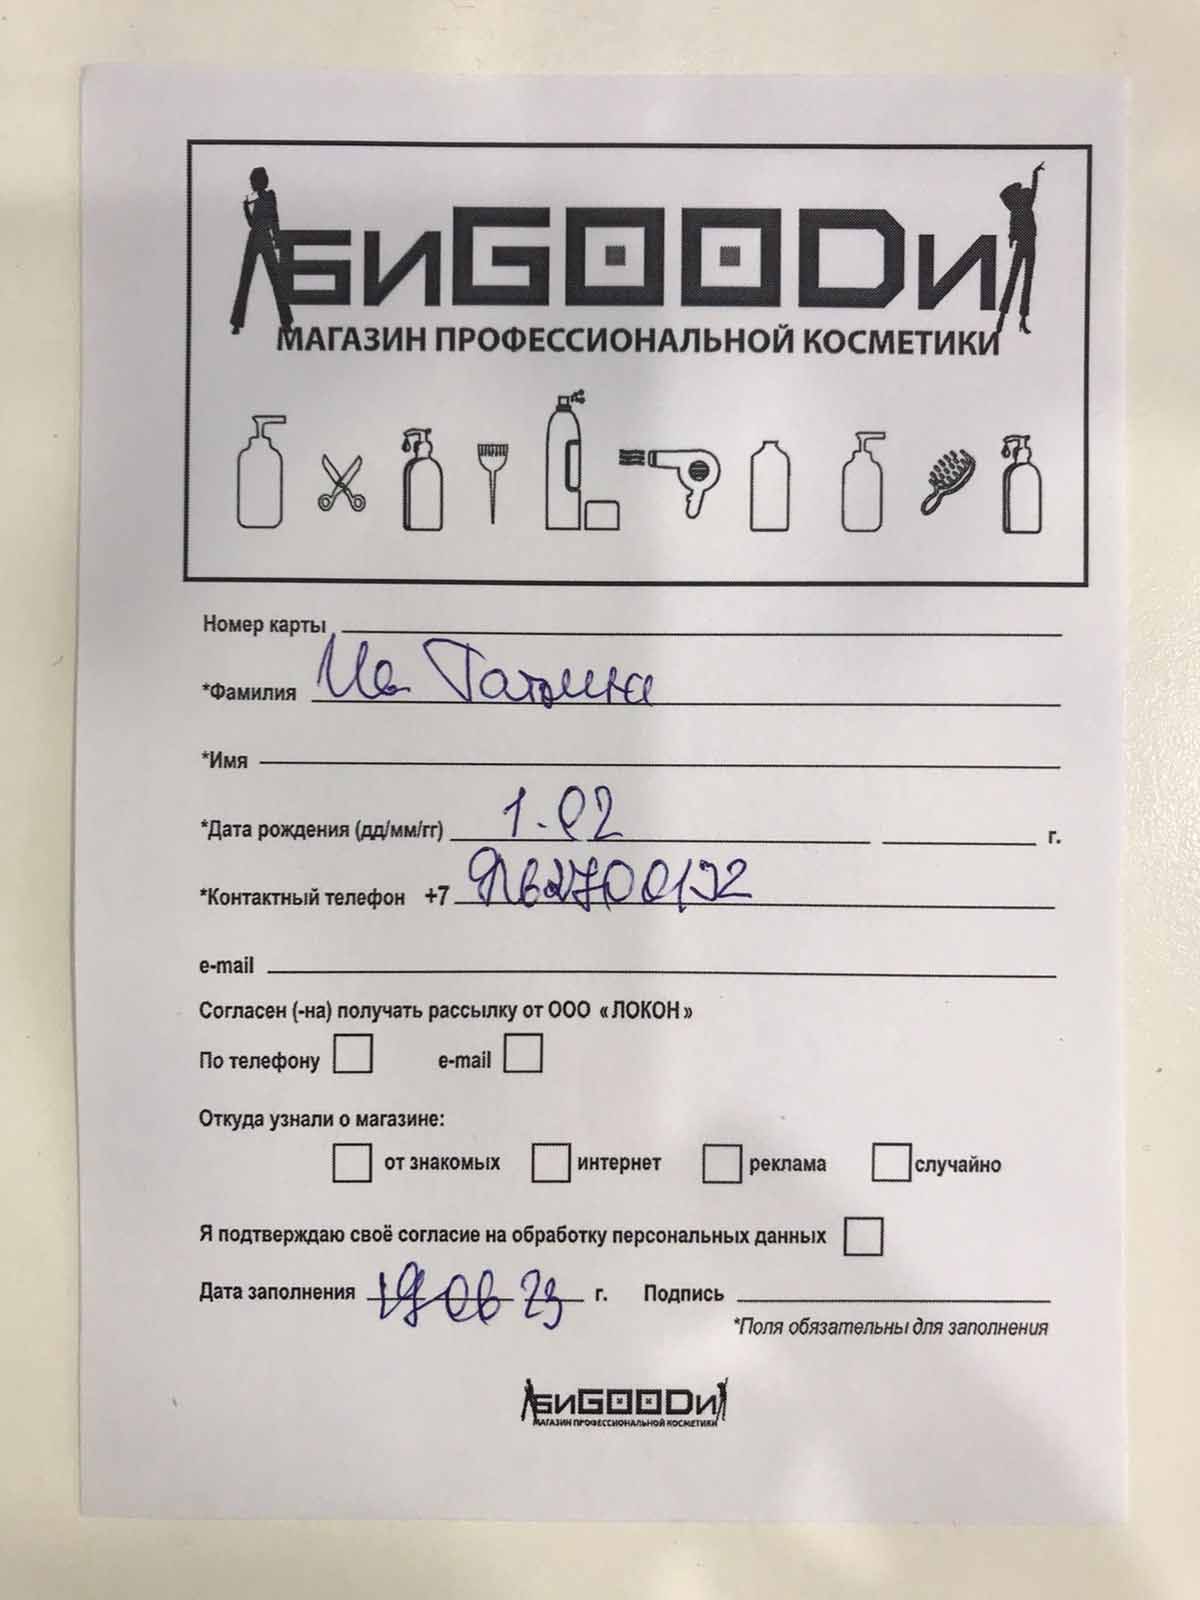 БИGOODИ
МАГАЗИН ПРОФЕССИОНАЛЬНОЙ КОСМЕТИКИ
Номер карты
*Фамилия Ив Татьяна
*Имя
*Дата рождения (дд/мм/гг) 1.02 г.
*Контактный телефон +7
e-mail
Согласен (-на) получать рассылку от ООО «ЛОКОН»
По телефону e-mail
Откуда узнали о магазине:
от знакомых интернет реклама случайно
Я подтверждаю своё согласие на обработку персональных данных
Дата заполнения 19 06 23 г. Подпись
*Поля обязательны для заполнения
БИGOODИ
МАГАЗИН ПРОФЕССИОНАЛЬНОЙ КОСМЕТИКИ